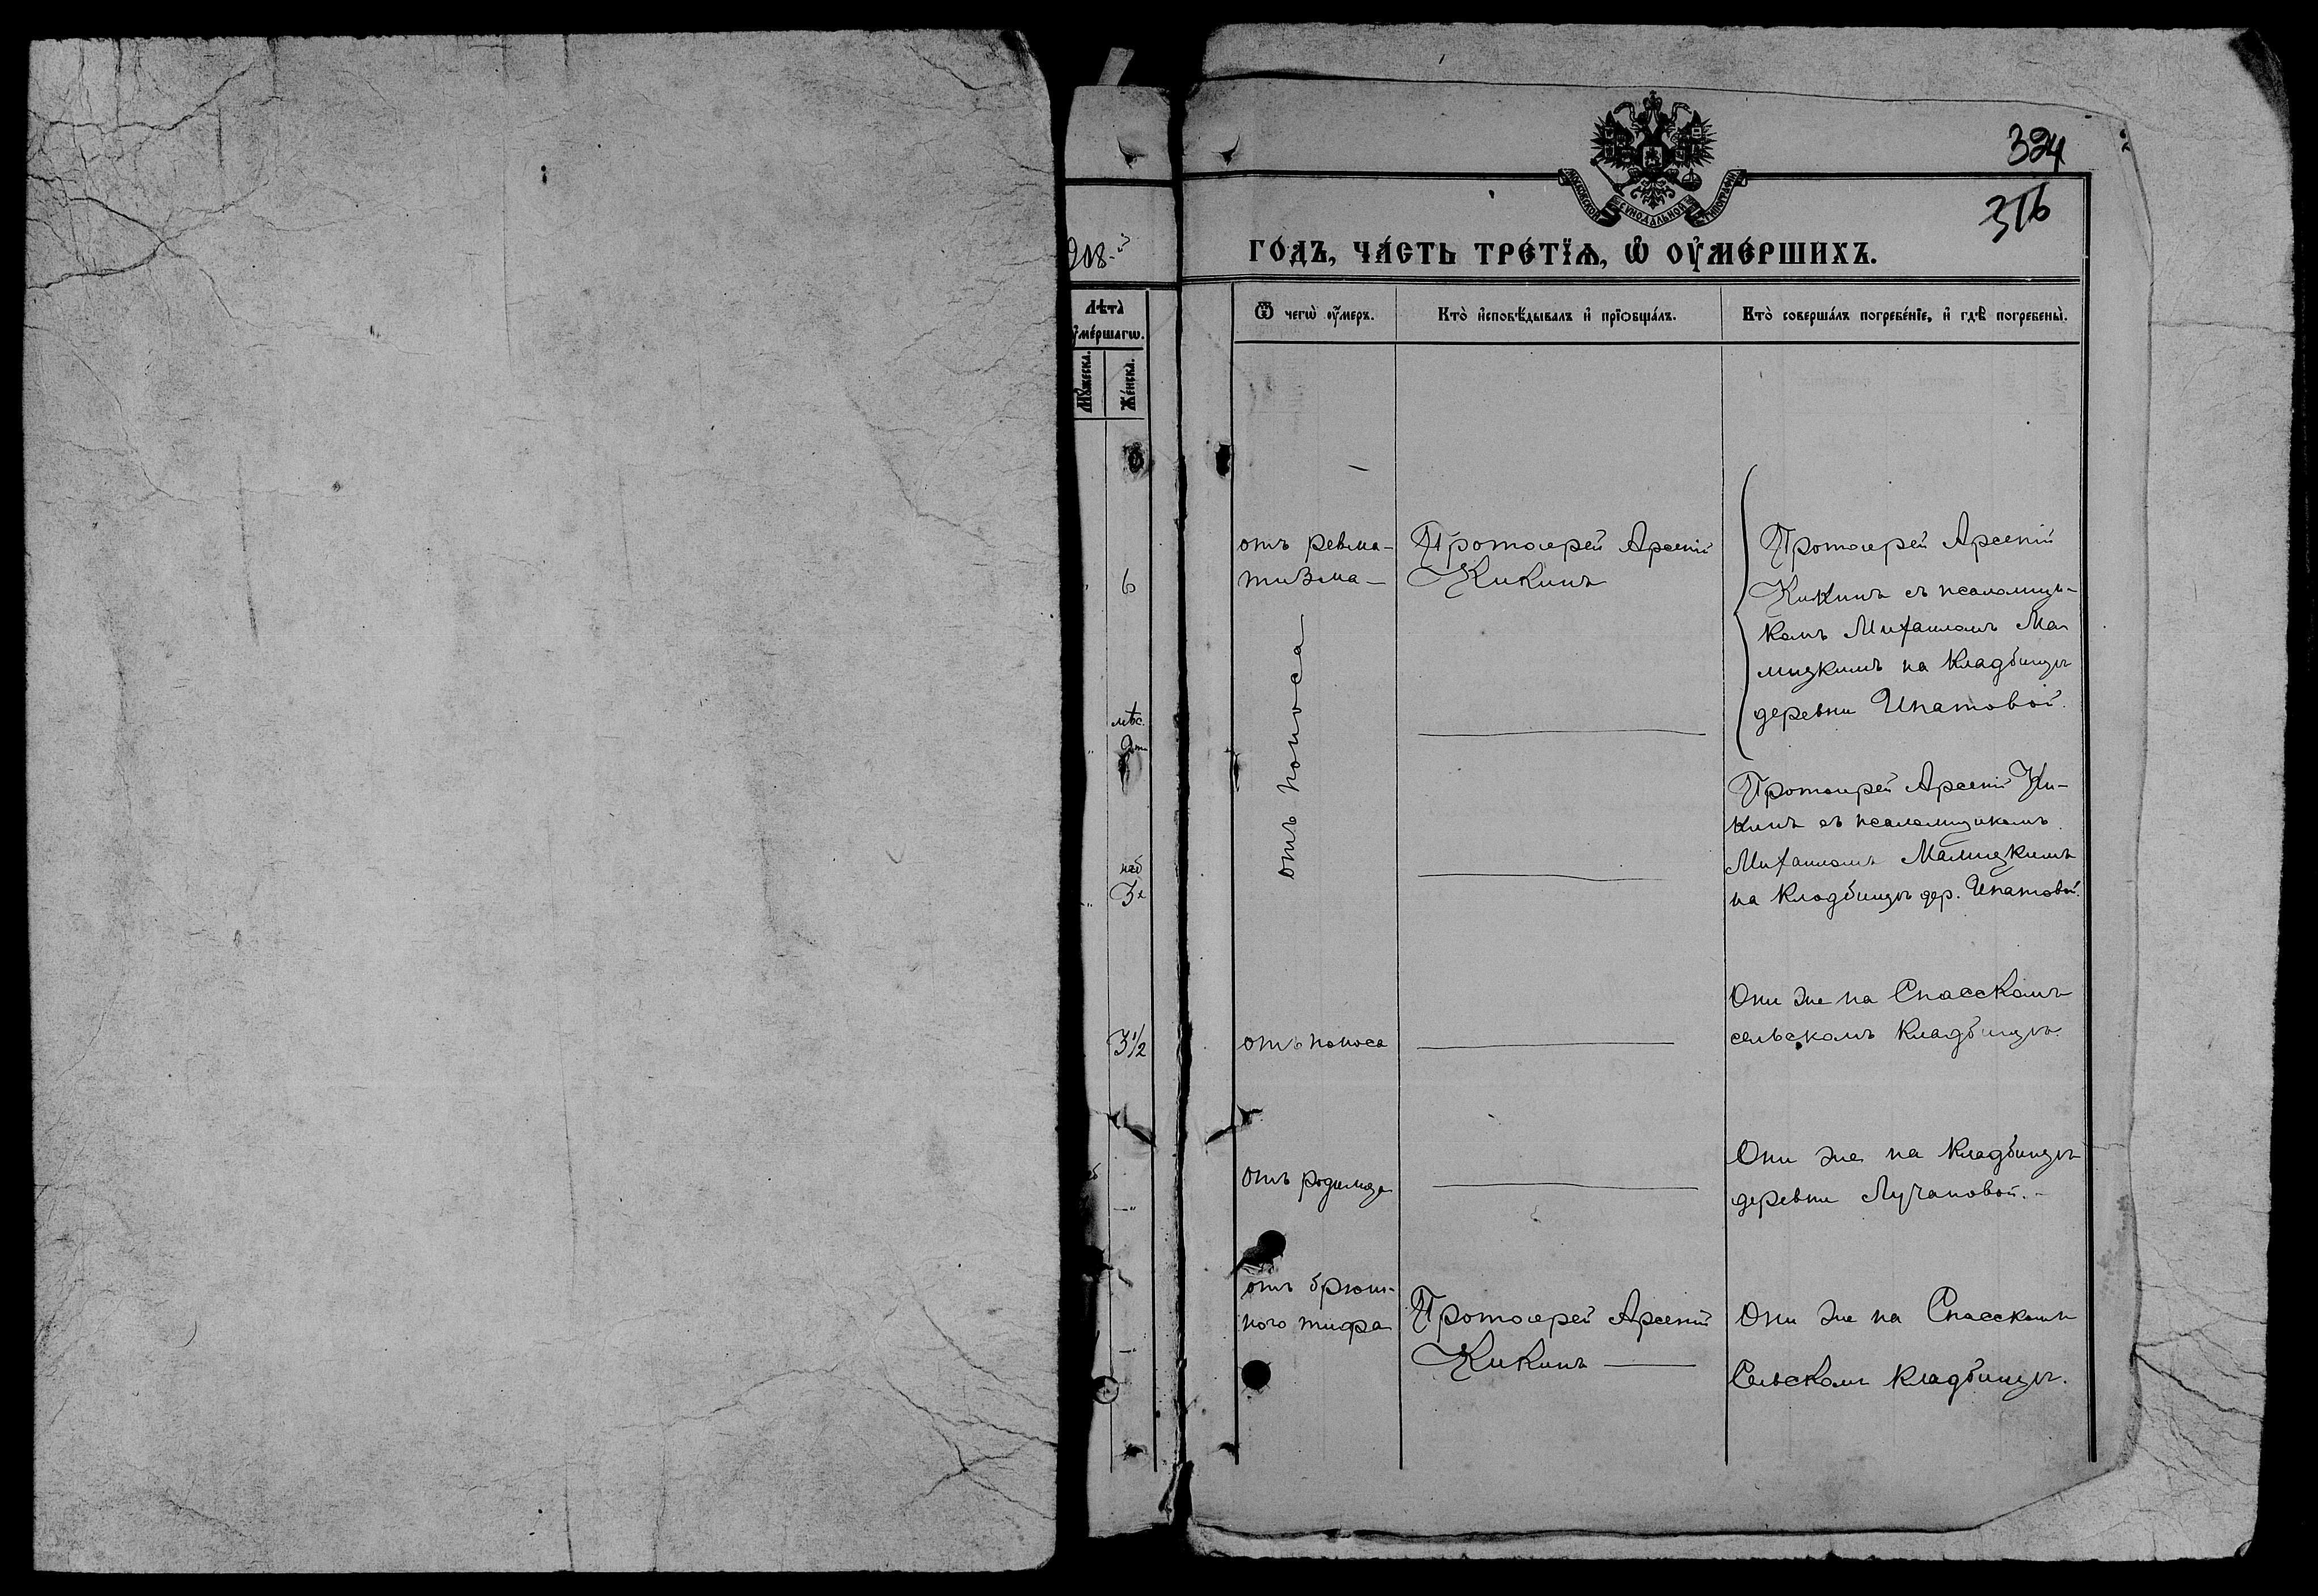 324
316
МОСКОВСКОЙ СѴНОДАЛЬНОЙ ТИПОГРАФІИ
908-й
ГОДЪ, ЧАСТЬ ТРЕТЇѦ, Ѡ ОУМЕРШИХЪ.
Лѣта
оумершагѡ.
Мꙋжеска.
Женска.
Ѿ чегѡ оумеръ.
Кто исповѣдывалъ и прїобщалъ.
Кто совершалъ погребенїе, и гдѣ погребены.
6
отъ ревма-
тизма —
Протоіерей Арсеній
Кикинъ
Протоіерей Арсеній
Кикинъ съ псаломщи-
комъ Михаиломъ Ма-
лицкимъ на кладбищѣ
деревни Ипатовой.
мѣс.
отъ поноса
Протоіерей Арсеній Ки-
кинъ съ псаломщикомъ
Михаиломъ Малицкимъ
на кладбищѣ дер. Ипатовой.
3½
отъ поноса
Они же на Спасскомъ
сельскомъ кладбищѣ.
отъ родимца
Они же на кладбищѣ
деревни Лучановой. -
отъ брюш-
ного тифа
Протоіерей Арсеній
Кикинъ —
Они же на Спасскомъ
Сельскомъ кладбищѣ.